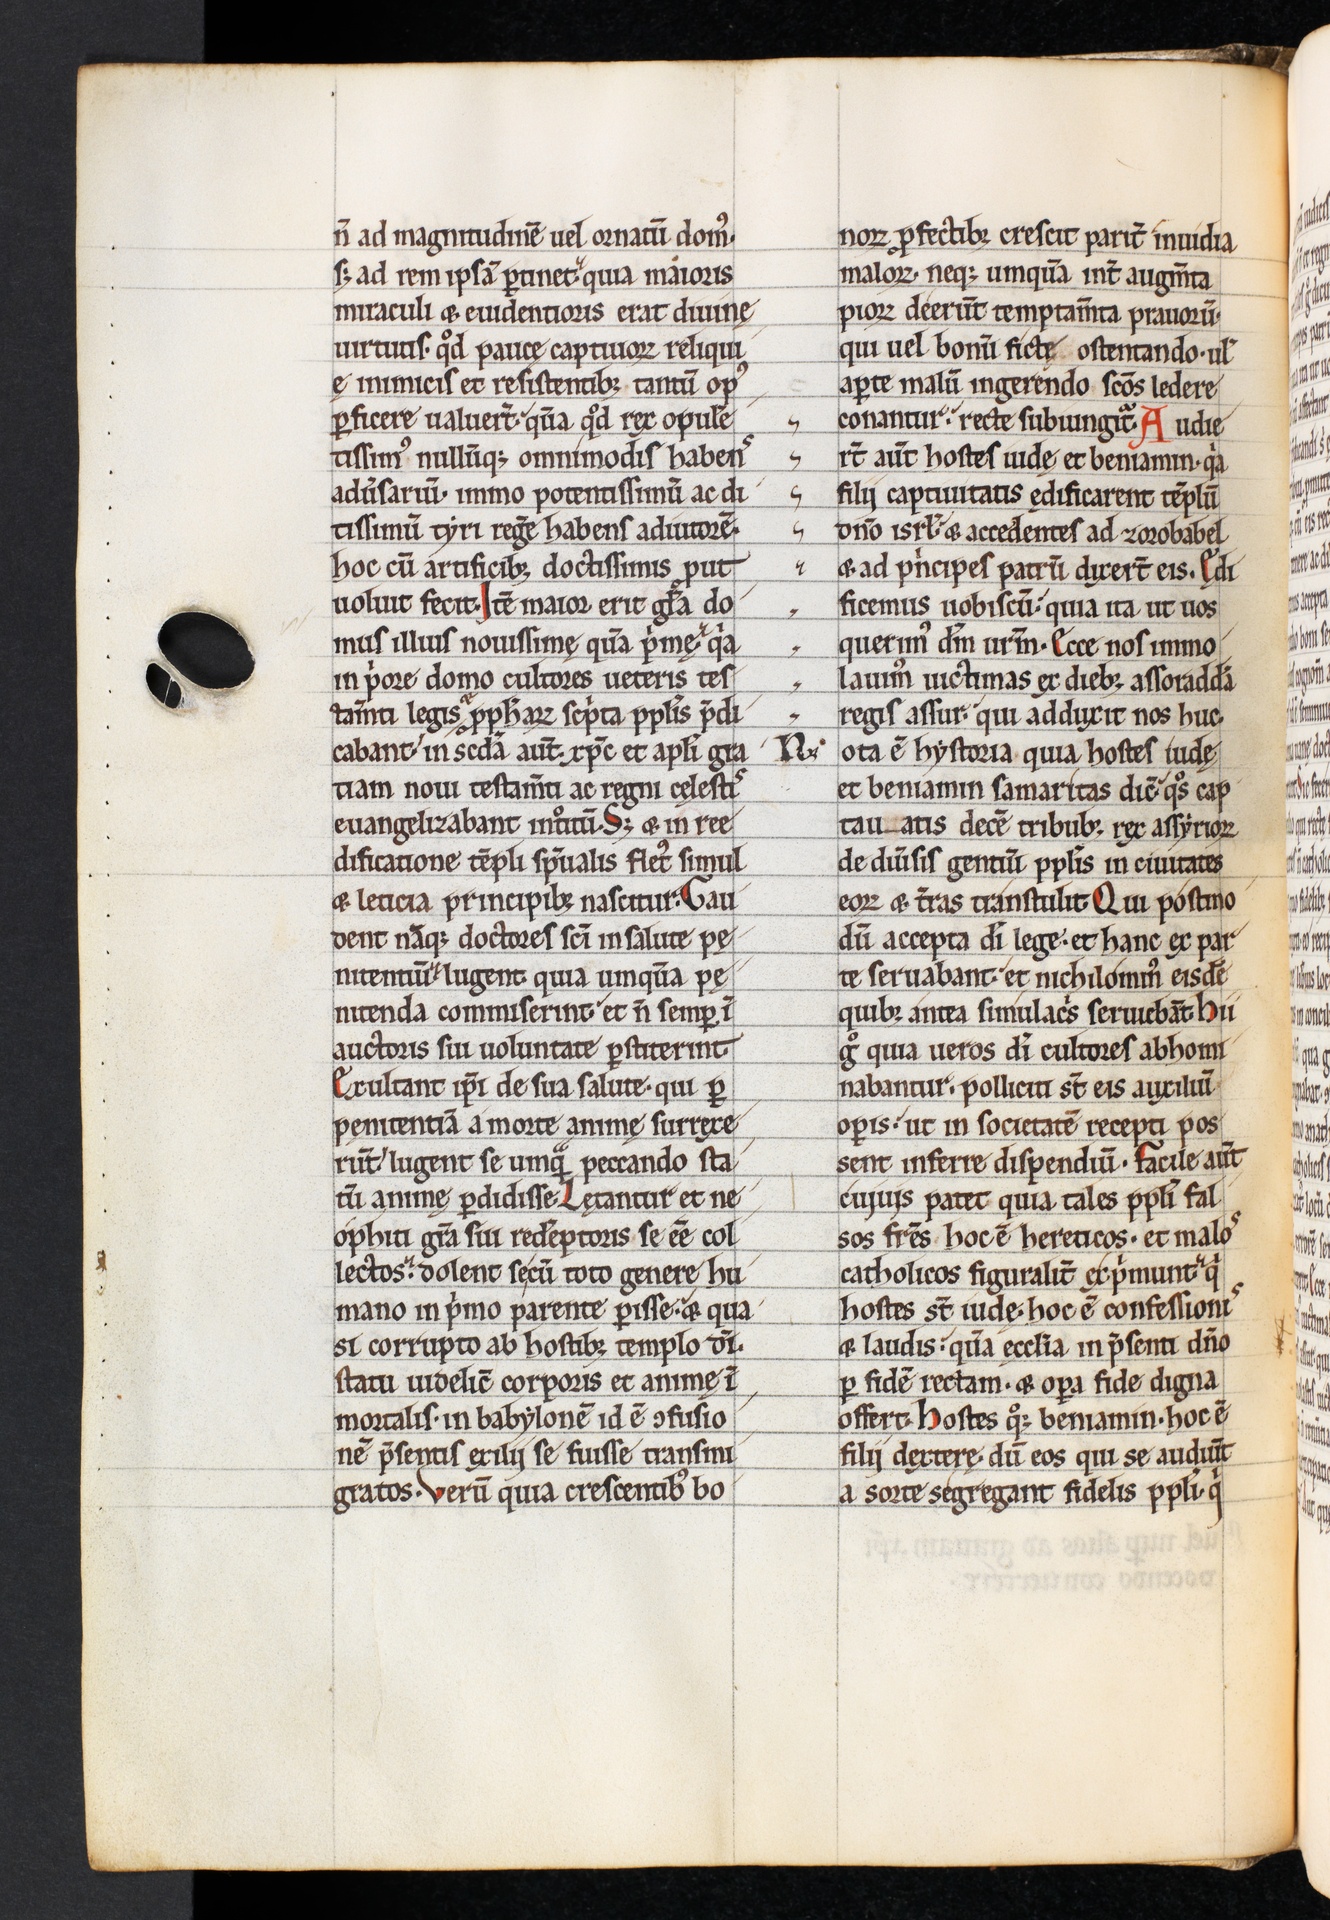 n̄ ad magnitudinē uel ornatū domꝰ
sꝫ ad rem ipsā ꝑtinet quia maioris
miraculi & euidentioris erat diuinę
uirtutis. qd̄ paucę captiuoꝝ reliqui
ę inimicis et resistentibꝫ tantū opꝰ
ꝑficere ualuer̄t. quā qd̄ rex opulē
tissimꝰ nullūqꝫ omnimodis habens
adūsariū. immo potentissimū ac di
tissimū tyri regē habens adiutorē.
hoc cū artificibꝫ doctissimis ꝓut
uoluit fecit. Itē maior erit gl̄a do
mus illius nouissimę quā pⁱmę. qⁱa
in pⁱore domo cultores ueteris tes
tam̄ti legis ꝓph̄aꝝ scpⁱta ppl̄is p̄di
cabant. in scd̄a aut̄ xp̄c et apl̄i gra
tiam noui testam̄ti ac regni cęlestis
euangelizabant intⁱoitū. Sꝫ & in ree
dificatione tēpli spūalis fletꝰ simul
& leticia principibꝫ nascitur. Gau
dent nāqꝫ doctores sc̄i in salute pę
nitentiū. lugent quia umquā pę
nitenda commiserint. et n̄ semꝑ ī
auctoris sui uoluntate ꝑstiterint
Exultant ip̄i de sua salute. qui ꝑ
pęnitentiā a morte animę surrexe
rūt. lugent se umqᵃ peccando sta
tū animę ꝑdidisse. Lętantur et ne
ophiti gr̄a sui redēptoris se eē col
lectos. dolent secū toto genere hu
mano in pⁱmo parente ꝑisse. & qua
si corrupto ab hostibꝫ templo dī.
statu uidelic̄ corporis et animę ī
mortalis. in babylonē id ē ꝯfusio
nē p̄sentis exilij se fuisse transmi
gratos. Verū quia crescentibꝰ bo
noꝝ ꝓfectibꝫ crescit parit̄ inuidia
maloꝝ. neqꝫ umquā int̄ augm̄ta
pioꝝ deerūt temptam̄ta prauorū.
qui uel bonū fictę ostentando. ul̄
aꝑte malū ingerendo scōs ledere
conantur. recte subiungit̄. Audie
rt̄ aut̄ hostes iudę et beniamin. qⁱa
filij captiuitatis ędificarent tēplū
dn̄o isrl̄. & accedentes ad zorobabel
& ad pⁱncipes patrū dixert̄ eis. Ędi
ficemus uobiscū. quia ita ut uos
querimꝰ dm̄ urm̄. Ecce nos immo
lauimꝰ uictimas ex diebꝫ assoraddā
regis assur. qui adduxit nos huc.
Nota ē hystoria quia hostes iudę
et beniamin samaritas dic̄. qᵒs cap
tau atis decē tribubꝫ rex assyrioꝝ
de diūsis gentiū ppl̄is in ciuitates
eoꝝ & t̄ras transtulit. Qui postmo
dū accepta dī lege. et hanc ex par
te seruabant. et nichilominꝰ eisdē
quibꝫ antea simulacⁱs seruiebāt. Hii
gᵒ quia ueros dī cultores abhomi
nabantur. polliciti st̄ eis auxiliū
oꝑis. ut in societatē recepti pos
sent inferre dispendiū. Facile aut̄
cuiuis patet quia tales ppl̄i fal
sos frēs hoc ē hereticos. et malos
catholicos figuralit̄ expⁱmunt. qⁱ
hostes st̄ iudę. hoc ē confessionis
& laudis. quā eccl̄ia in p̄senti dn̄o
ꝑ fidē rectam. & oꝑa fide digna
offert. Hostes qᵒqꝫ beniamin. hoc ē
filij dexterę. dū eos qui se audiūt
a sorte segregant fidelis ppl̄i. qⁱ